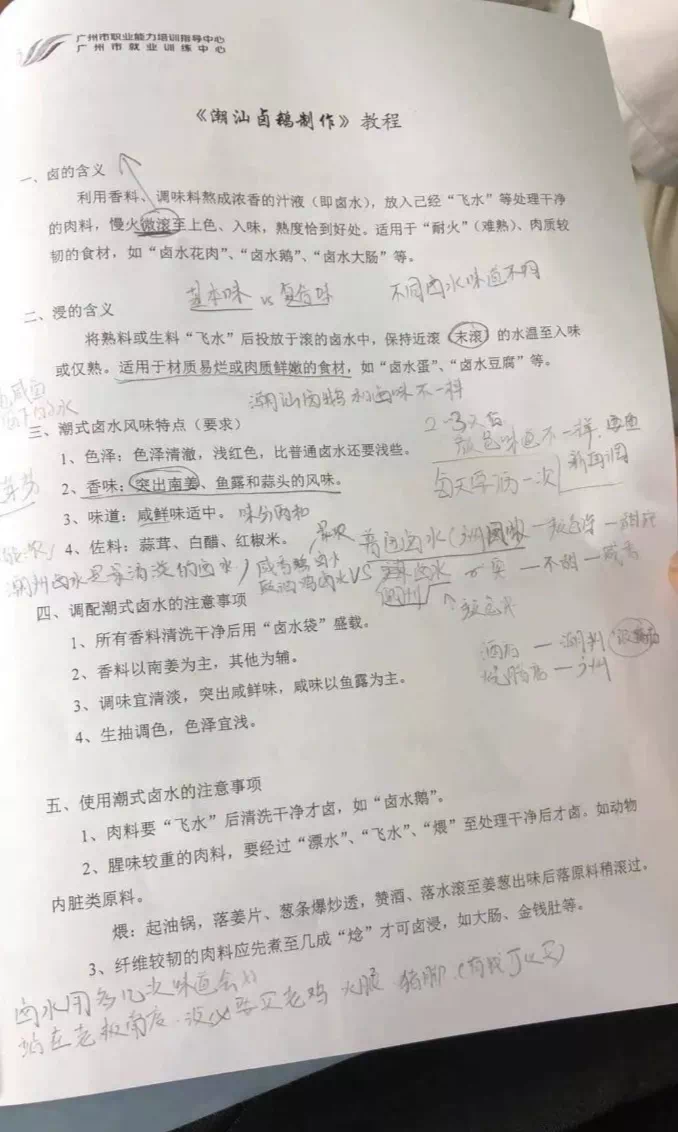 广州市职业能力培训指导中心
广州市就业训练中心
《潮汕卤鹅制作》教程
一、卤的含义
利用香料、调味料熬成浓香的汁液（即卤水），放入已经“飞水”等处理干净
的肉料，慢火微滚至上色、入味，熟度恰到好处。适用于“耐火”（难熟）、肉质较
韧的食材，如“卤水花肉”、“卤水鹅”、“卤水大肠”等。
基本味 vs 复合味 不同卤水味道不同
二、浸的含义
将熟料或生料“飞水”后投放于滚的卤水中，保持近滚（未滚）的水温至入味
或仅熟。适用于材质易烂或肉质鲜嫩的食材，如“卤水蛋”、“卤水豆腐”等。
潮汕卤鹅和卤味不一样
三、潮式卤水风味特点（要求）
2-3天后
1、色泽：色泽清澈，浅红色，比普通卤水还要浅些。
颜色味道不一样
2、香味：突出南姜、鱼露和蒜头的风味。
每天早滴一次
3、味道：咸鲜味适中。
4、佐料：蒜茸、白醋、红椒米。
普通卤水
潮州卤水是最清淡的卤水
VS
四、调配潮式卤水的注意事项
1、所有香料清洗干净后用“卤水袋”盛载。
2、香料以南姜为主，其他为辅。
酒店 — 潮州
3、调味宜清淡，突出咸鲜味，咸味以鱼露为主。
烧腊店 — 广州
4、生抽调色，色泽宜浅。
五、使用潮式卤水的注意事项
1、肉料要“飞水”后清洗干净才卤，如“卤水鹅”。
2、腥味较重的肉料，要经过“漂水”、“飞水”、“煨”至处理干净后才卤。如动物
内脏类原料。
煨：起油锅，落姜片、葱条爆炒透，赞酒、落水滚至姜葱出味后落原料稍滚过。
3、纤维较韧的肉料应先煮至几成“焾”才可卤浸，如大肠、金钱肚等。
卤水用多几次味道会
站在老板角度 没必要买老鸡 火腿 猪脚